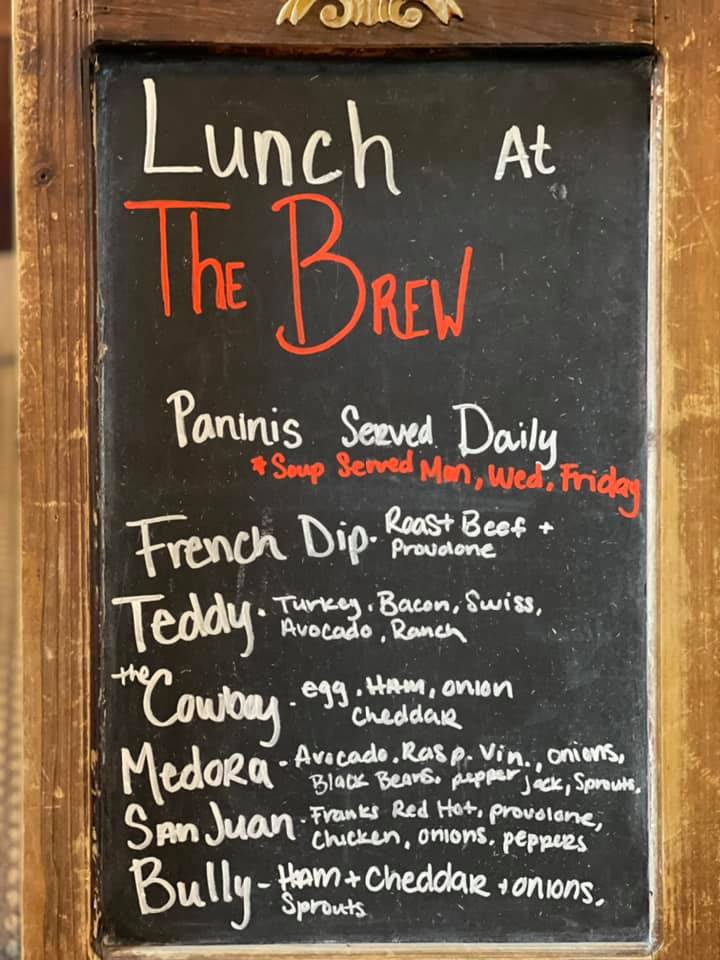 Lunch At
The Brew
Paninis Served Daily
* Soup Served Mon, Wed, Friday
French Dip. Roast Beef +
Provolone
Teddy. Turkey, Bacon, Swiss,
Avocado, Ranch
the Cowboy. egg, HAM, onion
cheddar
Medora - Avocado, Rasp. Vin., onions,
Black Beans, pepper jack, Sprouts,
San Juan. Franks Red Hot, provolone,
Chicken, onions, peppers
Bully - HAM + Cheddar + onions,
Sprouts